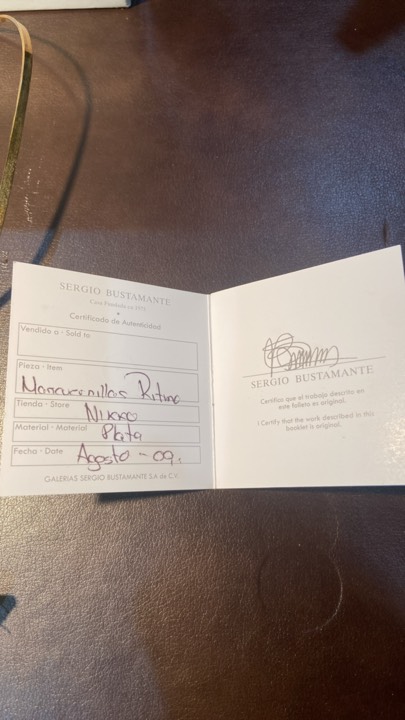 SERGIO BUSTAMANTE
Casa Fundada en 1975
Certificado de Autenticidad
Vendido a · Sold to
Pieza · Item
Mancuernillas Ritmo
Tienda · Store
Nikko
Material · Material
Plata
Fecha · Date
Agosto - 09.
GALERIAS SERGIO BUSTAMANTE S.A de C.V.
SERGIO BUSTAMANTE
Certifico que el trabajo descrito en
este folleto es original.
I Certify that the work described in this
booklet is original.